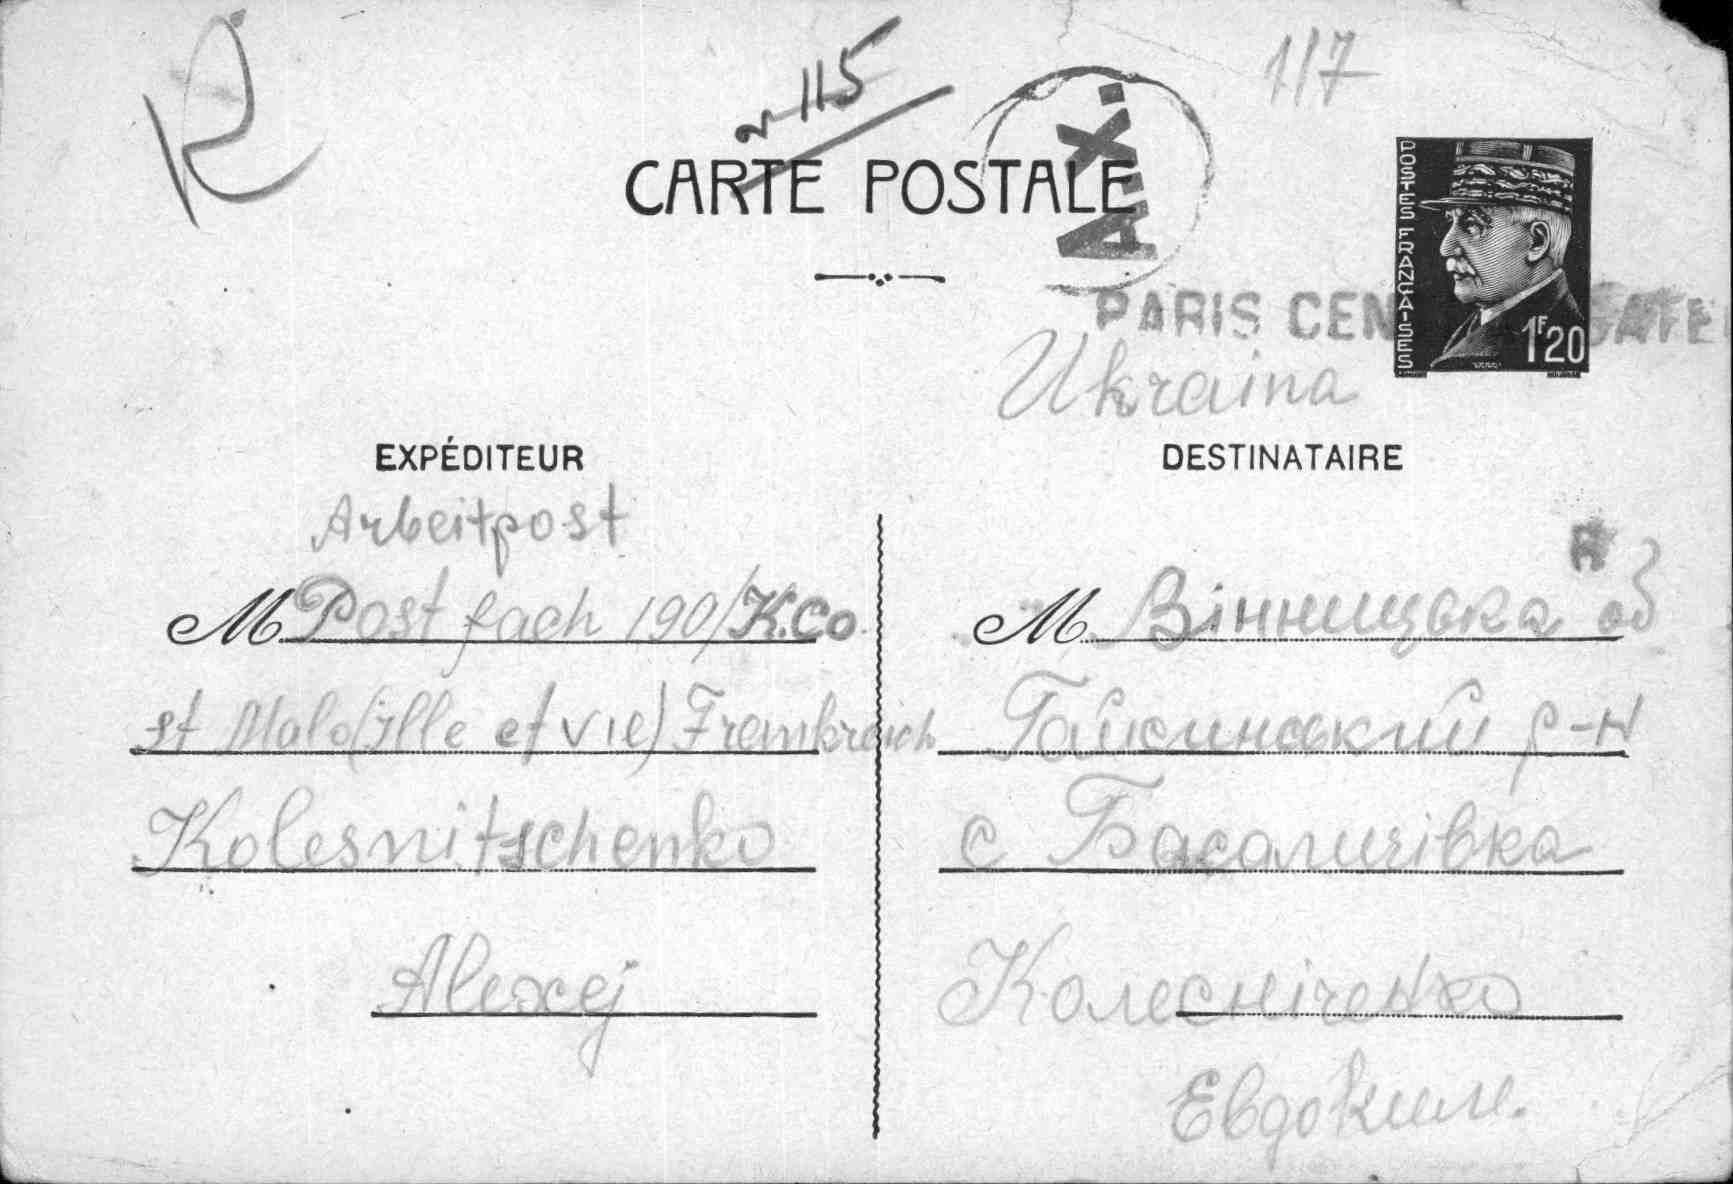 R
n 115
A.X.
117
CARTE POSTALE
POSTES FRANÇAISES
1F20
PARIS CEN GARE
Ukraina
EXPÉDITEUR
Arbeitpost
M Post fach 190/K.Co
st Malo (Jlle et vie) Frenkreich
Kolesnitschenko
Alexej
DESTINATAIRE
M Вінницька об
Гайсинський р-н
с Басаличівка
Колесніченко
Евдоким.